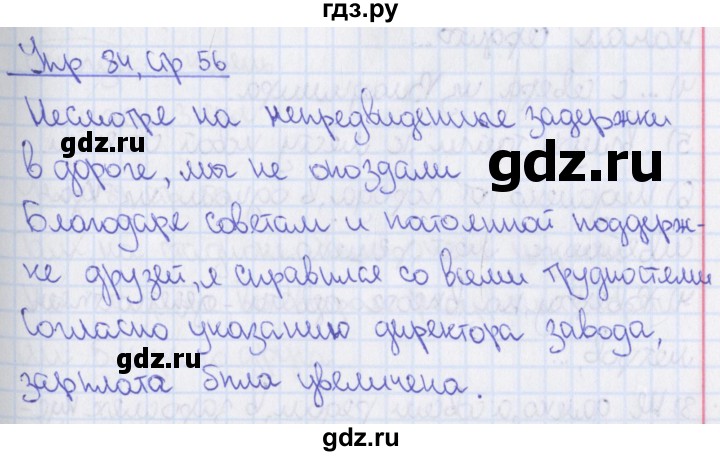 гдз.ру
Упр 84, стр 56
Несмотре на непредвиденные задержки
gdz.ru
в дороге, мы не опоздали
gdz.ru
Благодаре советам и патоянной поддерж-
ке друзей, я справился со всеми трудностями
Согласно указанию директора завода,
gdz.ru
gdz.ru
зарплата была увеличена.
gdz.ru